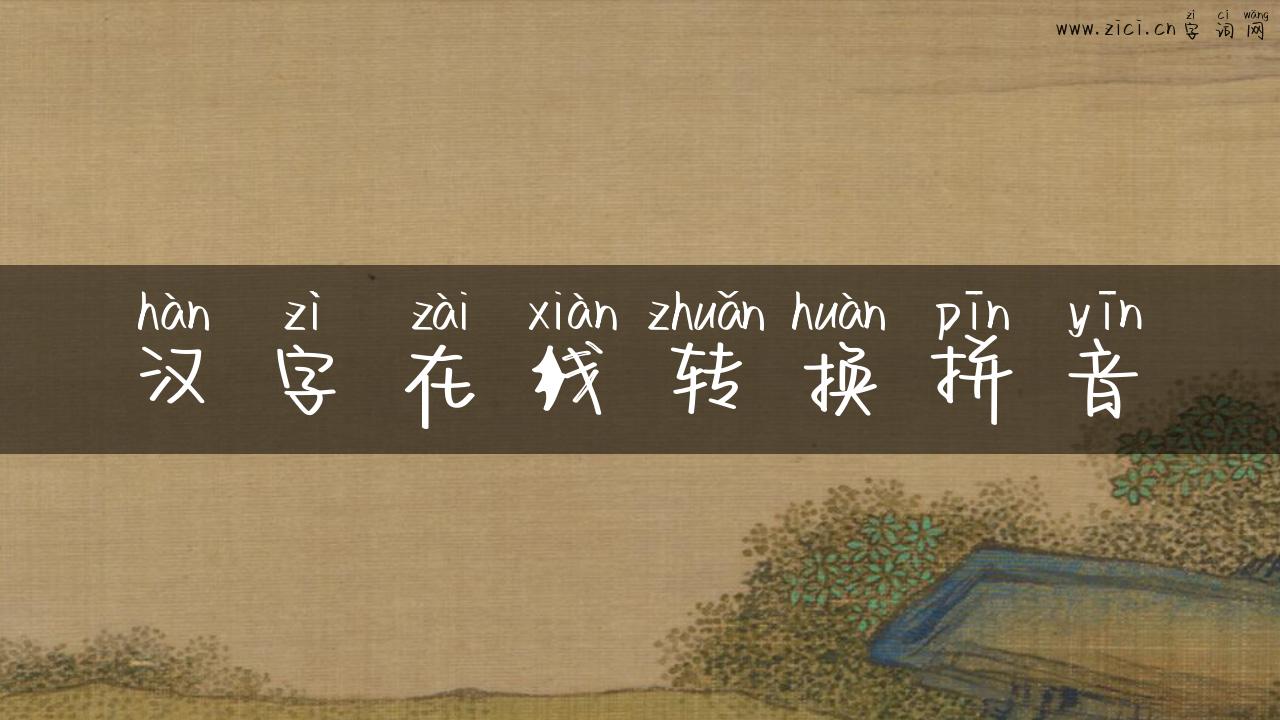 zì cí wǎng
www.zici.cn字词网
hàn zì zài xiàn zhuǎn huàn pīn yīn
汉字在线转换拼音